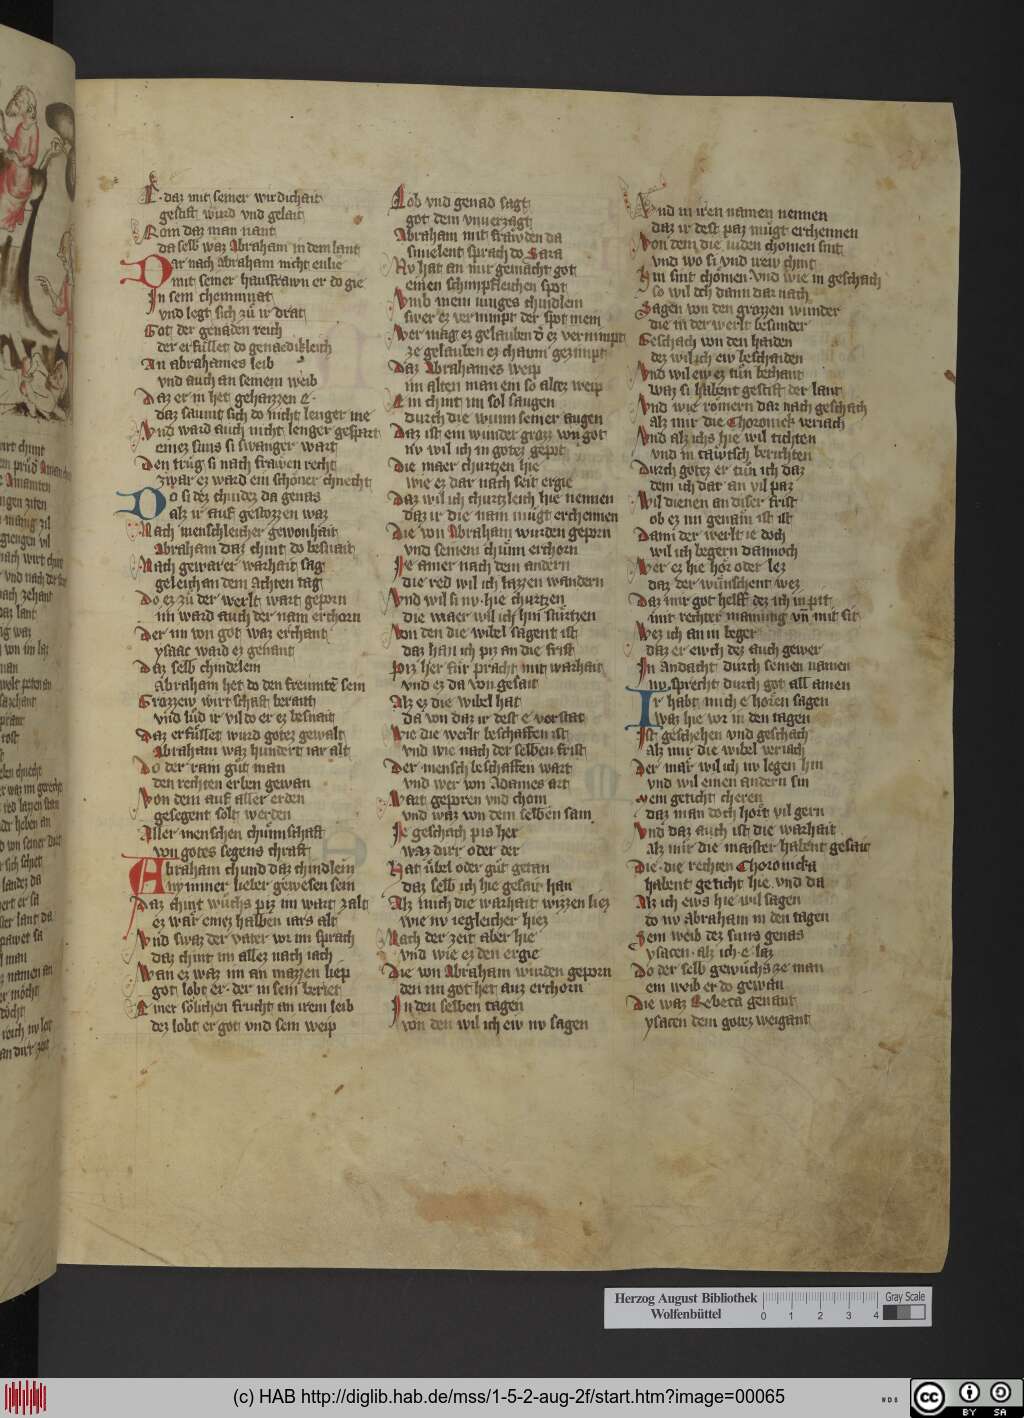 E. daz mit seiner wirdichait
gestift wurd vnd gelait
Rom daz man nant
da selb waz Abraham in dem lant
Dar nach Abraham nicht enlie
mit seiner hausfrawn er do gie
In sein chemmnat
vnd legt sich zů ir drat
Got der genaden reich
der erfůllet do genaedikleich
An abrahames leib
vnd auch an seinem weib
Daz er in het gehaizzen e.
daz saumt sich do nicht lenger me
Vnd ward auch nicht lenger gespart
einez suns si swanger wart
Den trůg si nach frawen recht
zwar ez ward ein schöner chnecht
Do si dez chindez da genas
alz ir auf geslozzen waz
Nach menschleicher gewonhait
Abraham daz chint do besnait
Nach gewarer warhait sag
geleich an dem achten tag
Do ez zů der werlt wart geporn
im ward auch der nam erchorn
Der im von got waz erchant
ysaac ward ez genant
Daz selb chindelein
Abraham het do den freunten sein
Grozzew wirtschaft berait
vnd lůd ir vil do er ez besnait
Daz erfůllet wurd gotez gewalt
Abraham waz hundert iar alt
Do der rain gůt man
den rechten erben gewan
Von dem auf aller erden
gesegent solt werden
Aller menschen chůmschaft
von gotes segens chraft
Abraham chund daz chindlein
nymmer lieber gewesen sein
Daz chint wůchs piz im wart zalt
ez wär einez halben iars alt
Vnd swaz der vater vor im sprach
daz chint im allez nach iach
Wan ez waz im an mazzen liep
got lobt er. der in sein beriet
Einer sölichen frucht an irem leib
dez lobt er got vnd sein weip
Lob vnd genad sagt
got dem vnuerzagt
Abraham mit fräwden da
smielent sprach do Sara
Nv hat an mir gemacht got
einen schimpfleichen spot
Vmb mein iunges chindlein
swer ez vernimpt der spot mein
Wer mag ez gelauben der ez vernimpt
ze gelauben ez chaum gezimpt
Daz Abrahames weip
im alten man ein so altez weip
Ein chint im sol saugen
durch die wunn seiner augen
Daz ist ein wunder groz von got
nv wil ich in gotez gepot
Die maer churtzen hie
wie ez dar nach seit ergie
Daz wil ich churtzleich hie nennen
daz ir die nam mügt erchennen
Die von Abraham wurden geporn
vnd seinem chůnn erchorn
Ie ainer nach dem andern
die red wil ich lazzen wandern
Vnd wil si nv. hie churtzen
die maer wil ich hin sturtzen
Von den die wibel sagent ist
daz han ich piz an die frist
Piz her fůr pracht mit warhait
vnd ez da von gesait
Alz ez die wibel hat
da von daz ir dest e verstat
Wie die werlt beschaffen ist
vnd wie nach der selben frist
Der mensch beschaffen wart
vnd wer von Adames art
Wart geporen vnd chom
vnd waz von dem selben sam
Ie geschach pis her
waz dirr oder der
Hat ůbel oder gůt getan
daz selb ich hie gesait han
Alz mich die warhait wizzen liez
wie nv iegleicher hiez
Nach der zeit aber hie
vnd wie ez den ergie
Die von Abraham wurden geporn
den im got het auz erchorn
In den selben tagen
von den wil ich ew nv sagen
Vnd in iren namen nennen
daz ir dest paz mügt erchennen
Von dem die iuden chomen sint
vnd wo si vnd irew chint
Hin sint chömen. vnd wie in geschach
so wil ich dann dar nach
Sagen von den grozzen wunder
die in der werlt besunder
Geschach von den haiden
dez wil ich ew beschaiden
Vnd wil ew ez tůn bechant
waz si habent gestift der lant
Vnd wie römern dar nach geschach
alz mir die Choronick veriach
Vnd alz ichs hie wil tichten
vnd in täwtsch berichten
Durch gotez er tůn ich daz
dem ich dar an vil paz
Wil dienen an diser frist
ob ez im genäm ist ist
Dann der werlt ie doch
wil ich begern dannoch
Wer ez hie hör oder lez
daz der wünschent wez
Daz mir got helff dez ich in pit
mit rechter mainung vnd mit sit
Wez ich an in beger
daz er ewch dez auch gewer
In andacht durch seinen namen
nv. sprecht durch got all amen
Ir habt mich e hören sagen
waz hie vor in den tagen
Ist geschehen vnd geschach
alz mir die wibel veriach
Der mär wil ich nv legen hin
vnd wil einen andern sin
Mein geticht cheren
daz man doch hört vil gern
Vnd daz auch ist die warhait
alz mir die maister habent gesait
Die. die rechten Choronicka
habent geticht hie. vnd da
Alz ich ews hie wil sagen
do nv abraham in den tagen
Sein weib dez suns genas
ysacen. alz ich. e. laz
Do der selb gewůchs ze man
ein weib er do gewan
Die waz Rebeca genant
ysacen dem gotez weigant
Herzog August Bibliothek
Wolfenbüttel
0 1 2 3 4
Gray Scale
(c) HAB http://diglib.hab.de/mss/1-5-2-aug-2f/start.htm?image=00065
WDB
cc BY SA